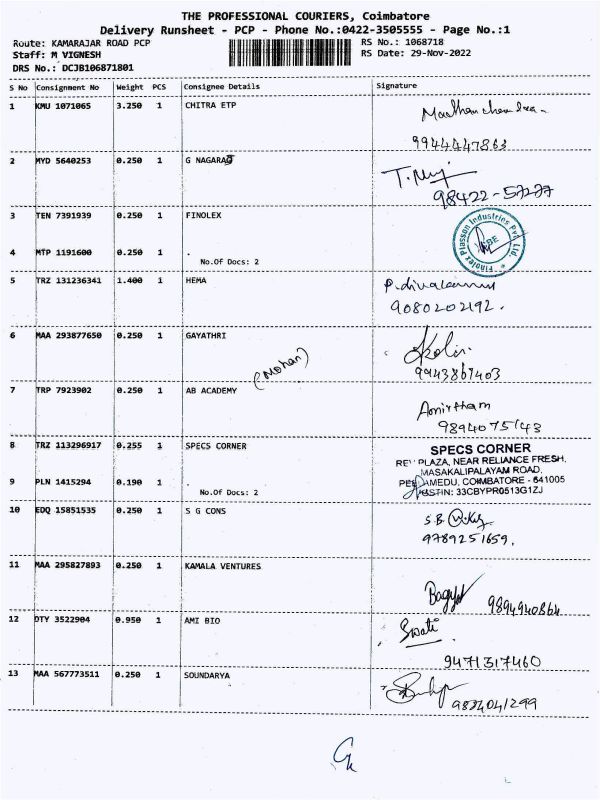 THE PROFESSIONAL COURIERS, Coimbatore
Delivery Runsheet - PCP - Phone No.:0422-3505555 - Page No.:1
Route: KAMARAJAR ROAD PCP RS No.: 1068718
Staff: M VIGNESH RS Date: 29-Nov-2022
DRS No.: DCJB106871801
S No Consignment No Weight PCS Consignee Details Signature
1 KMU 1071065 3.250 1 CHITRA ETP
9944447863
2 MYD 5640253 0.250 1 G NAGARAJ
98422-57277
3 TEN 7391939 0.250 1 FINOLEX
Finolex Plasson Industries Pvt. Ltd.
4 MTP 1191600 0.250 1 .
No.Of Docs: 2
5 TRZ 131236341 1.400 1 HEMA
9080202192.
6 MAA 293877650 0.250 1 GAYATHRI
(Mohan)
9943867403
7 TRP 7923902 0.250 1 AB ACADEMY
Amirtham
9894075143
8 TRZ 113296917 0.255 1 SPECS CORNER
SPECS CORNER
PLAZA, NEAR RELIANCE FRESH,
MASAKALIPALAYAM ROAD,
9 PLN 1415294 0.190 1 .
COIMBATORE - 641005
No.Of Docs: 2
GSTIN: 33CBYPR0513G1ZJ
10 EDQ 15851535 0.250 1 S G CONS
S.B
9789251659.
11 MAA 295827893 0.250 1 KAMALA VENTURES
9894940864
12 DTY 3522904 0.950 1 AMI BIO
Swati
9471317460
13 MAA 567773511 0.250 1 SOUNDARYA
9834041299